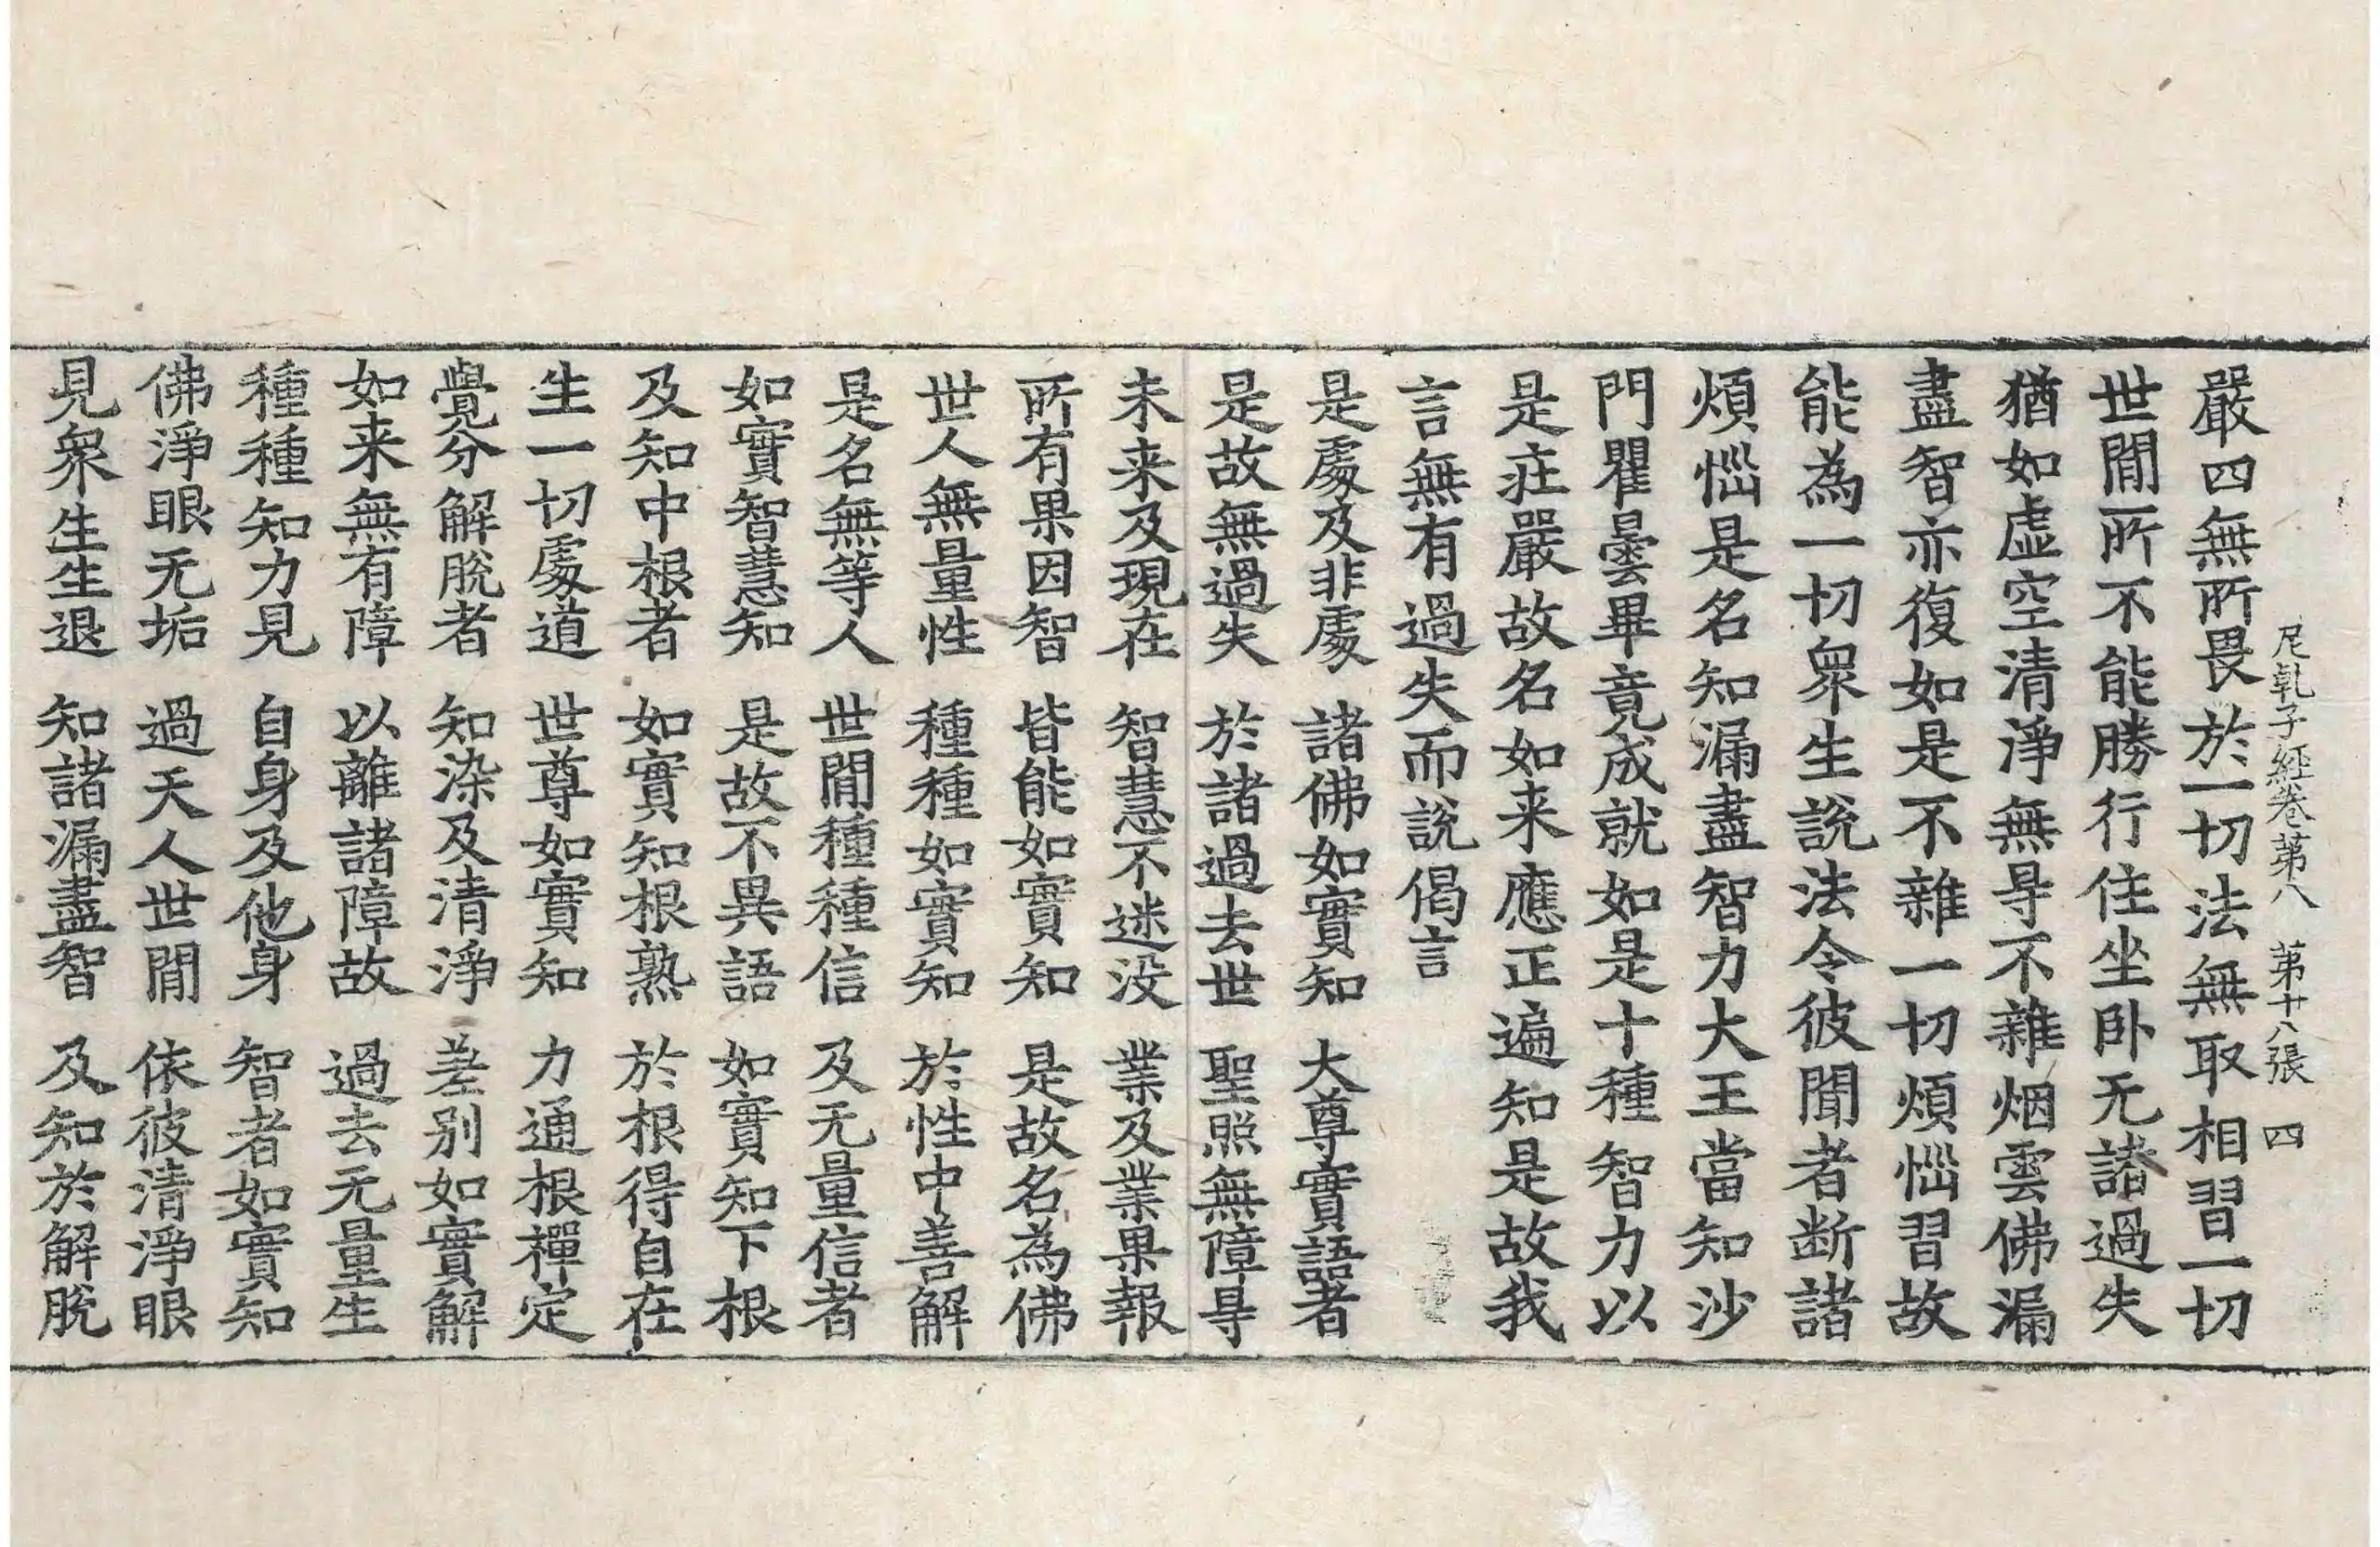 尼乹子經卷第八　第十八張　四
嚴四無所畏於一切法無取相習一切
世閒所不能勝行住坐卧无諸過失
猶如虚空清淨無㝵不雜烟雲佛漏
盡智亦復如是不雜一切煩惱習故
能為一切衆生說法令彼聞者断諸
煩惱是名知漏盡智力大王當知沙
門瞿曇畢竟成就如是十種智力以
是莊嚴故名如来應正遍知是故我
言無有過失而說偈言
是處及非處　諸佛如實知　大尊實語者
是故無過失　於諸過去世　聖照無障㝵
未来及現在　智慧不迷没　業及業果報
所有果因智　皆能如實知　是故名為佛
世人無量性　種種如實知　於性中善解
是名無等人　世閒種種信　及无量信者
如實智慧知　是故不異語　如實知下根
及知中根者　如實知根熟　於根得自在
生一切處道　世尊如實知　力通根禪定
覺分解脫者　知染及清淨　差别如實解
如来無有障　以離諸障故　過去无量生
種種知力見　自身及他身　智者如實知
佛淨眼无垢　過天人世閒　依彼清淨眼
見衆生生退　知諸漏盡智　及知於解脫